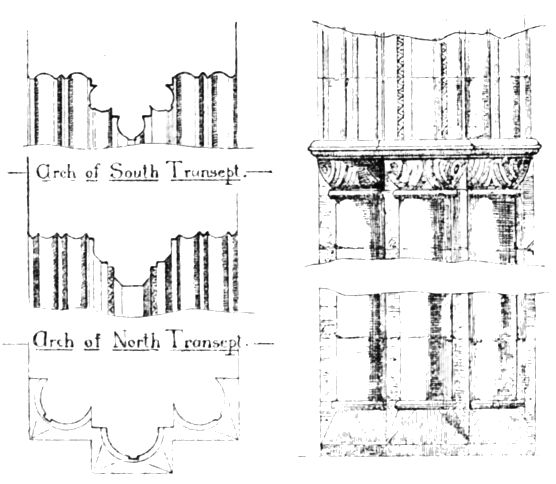 Arch of South Transept.
Arch of North Transept.